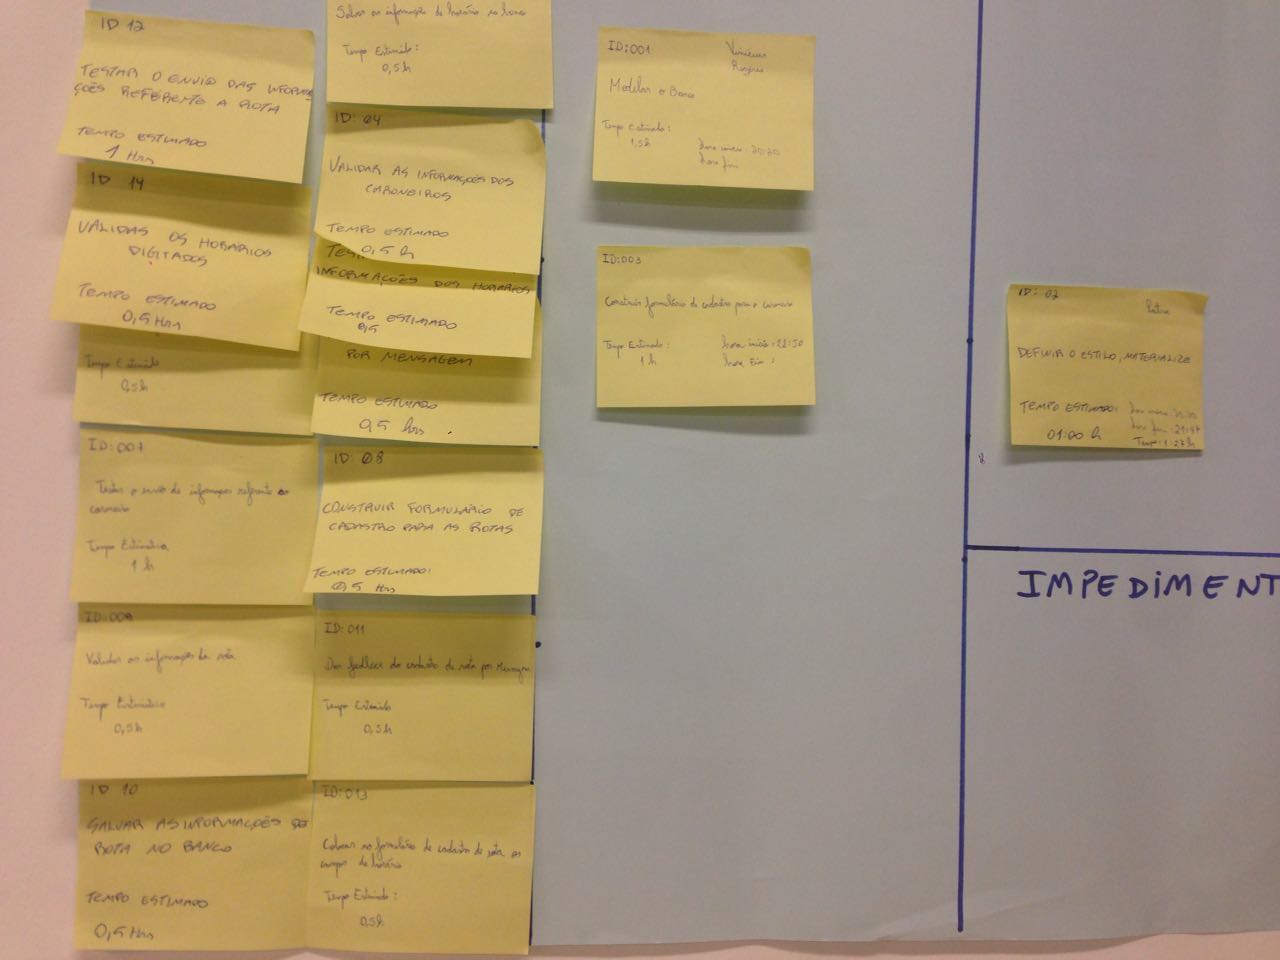 ID 12
TESTAR O ENVIO DAS INFORMA
ÇÕES REFERENTE A ROTA
TEMPO ESTIMADO
1 Hrs
ID 14
VALIDAS OS HORARIOS
DIGITADOS
TEMPO ESTIMADO
0,5 Hrs
Tempo Estimado:
0,5h
ID:007
Testar o envio de informações referente ao
caroneiro
Tempo Estimativa
1 h
Validar as informações da rota
Tempo Estimativa
0,5h
ID 10
SALVAR AS INFORMAÇÕES DE
ROTA NO BANCO
TEMPO ESTIMADO
0,5 Hrs
Salvar as informação de horário no banco
Tempo Estimado:
0,5h
ID: 04
VALIDAR AS INFORMAÇÕES DOS
CARONEIROS
TEMPO ESTIMADO
0,5 h
INFORMAÇÕES DOS HORARIOS
TEMPO ESTIMADO
0,5
POR MENSAGEM
TEMPO ESTIMADO
0,5 hrs
ID: 08
CONSTRUIR FORMULARIO DE
CADASTRO PARA AS ROTAS
TEMPO ESTIMADO:
0,5 Hrs
ID:011
Dar feedback do cadastro de rota por
Tempo Estimado
0,5h
ID:013
Colocar no formulário de cadastro de rota os
campos de horário
Tempo Estimado:
0,5h
ID:001
Vinicius
Modelar o Banco
Tempo Estimado:
1,5h
hora inicio: 20:20
hora fim
ID:003
Construir formulário de cadastro para o caroneiro
Tempo Estimado:
1 h
hora inicio: 21:50
hora Fim:
ID: 02
DEFINIR O ESTILO, MATERIALIZE
TEMPO ESTIMADO:
01:00 h
hora fim: 21:47
Tempo: 1:27h
IMPEDIMENT